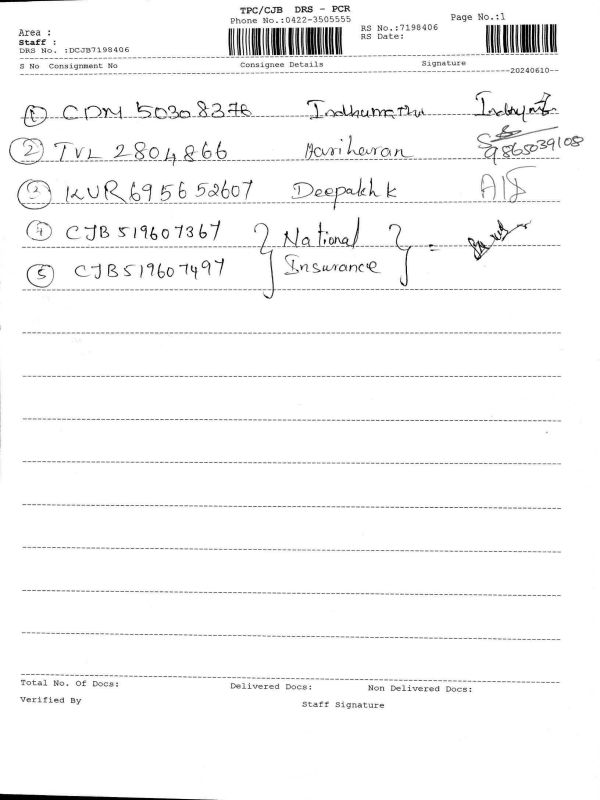 TPC/CJB DRS - PCR
Phone No.:0422-3505555
Page No.:1
Area :
Staff :
DRS No. :DCJB7198406
RS No.:7198406
RS Date:
S No Consignment No Consignee Details Signature
20240610
1 CDM 50308376 Indhumathi
2 TVL 2804866 Hariharan 9865039108
3 KUR695652607 Deepakh k
4 CJB519607367 } National } =
5 CJB519607497 Insurance
Total No. Of Docs: Delivered Docs: Non Delivered Docs:
Verified By Staff Signature